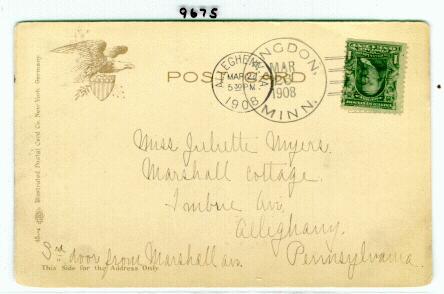 9675
POST CARD
ALLEGHENY, PA.
MAR 22
5-30 PM
1908
LANGDON,
MAR
1908
MINN.
1
Miss Juliette Myers.
Marshall Cottage.
Imbrie Av.
Alleghany.
3rd door from Marshall av.
Pennsylvania.
This Side for the Address Only
Illustrated Postal Card Co. New-York, Germany.